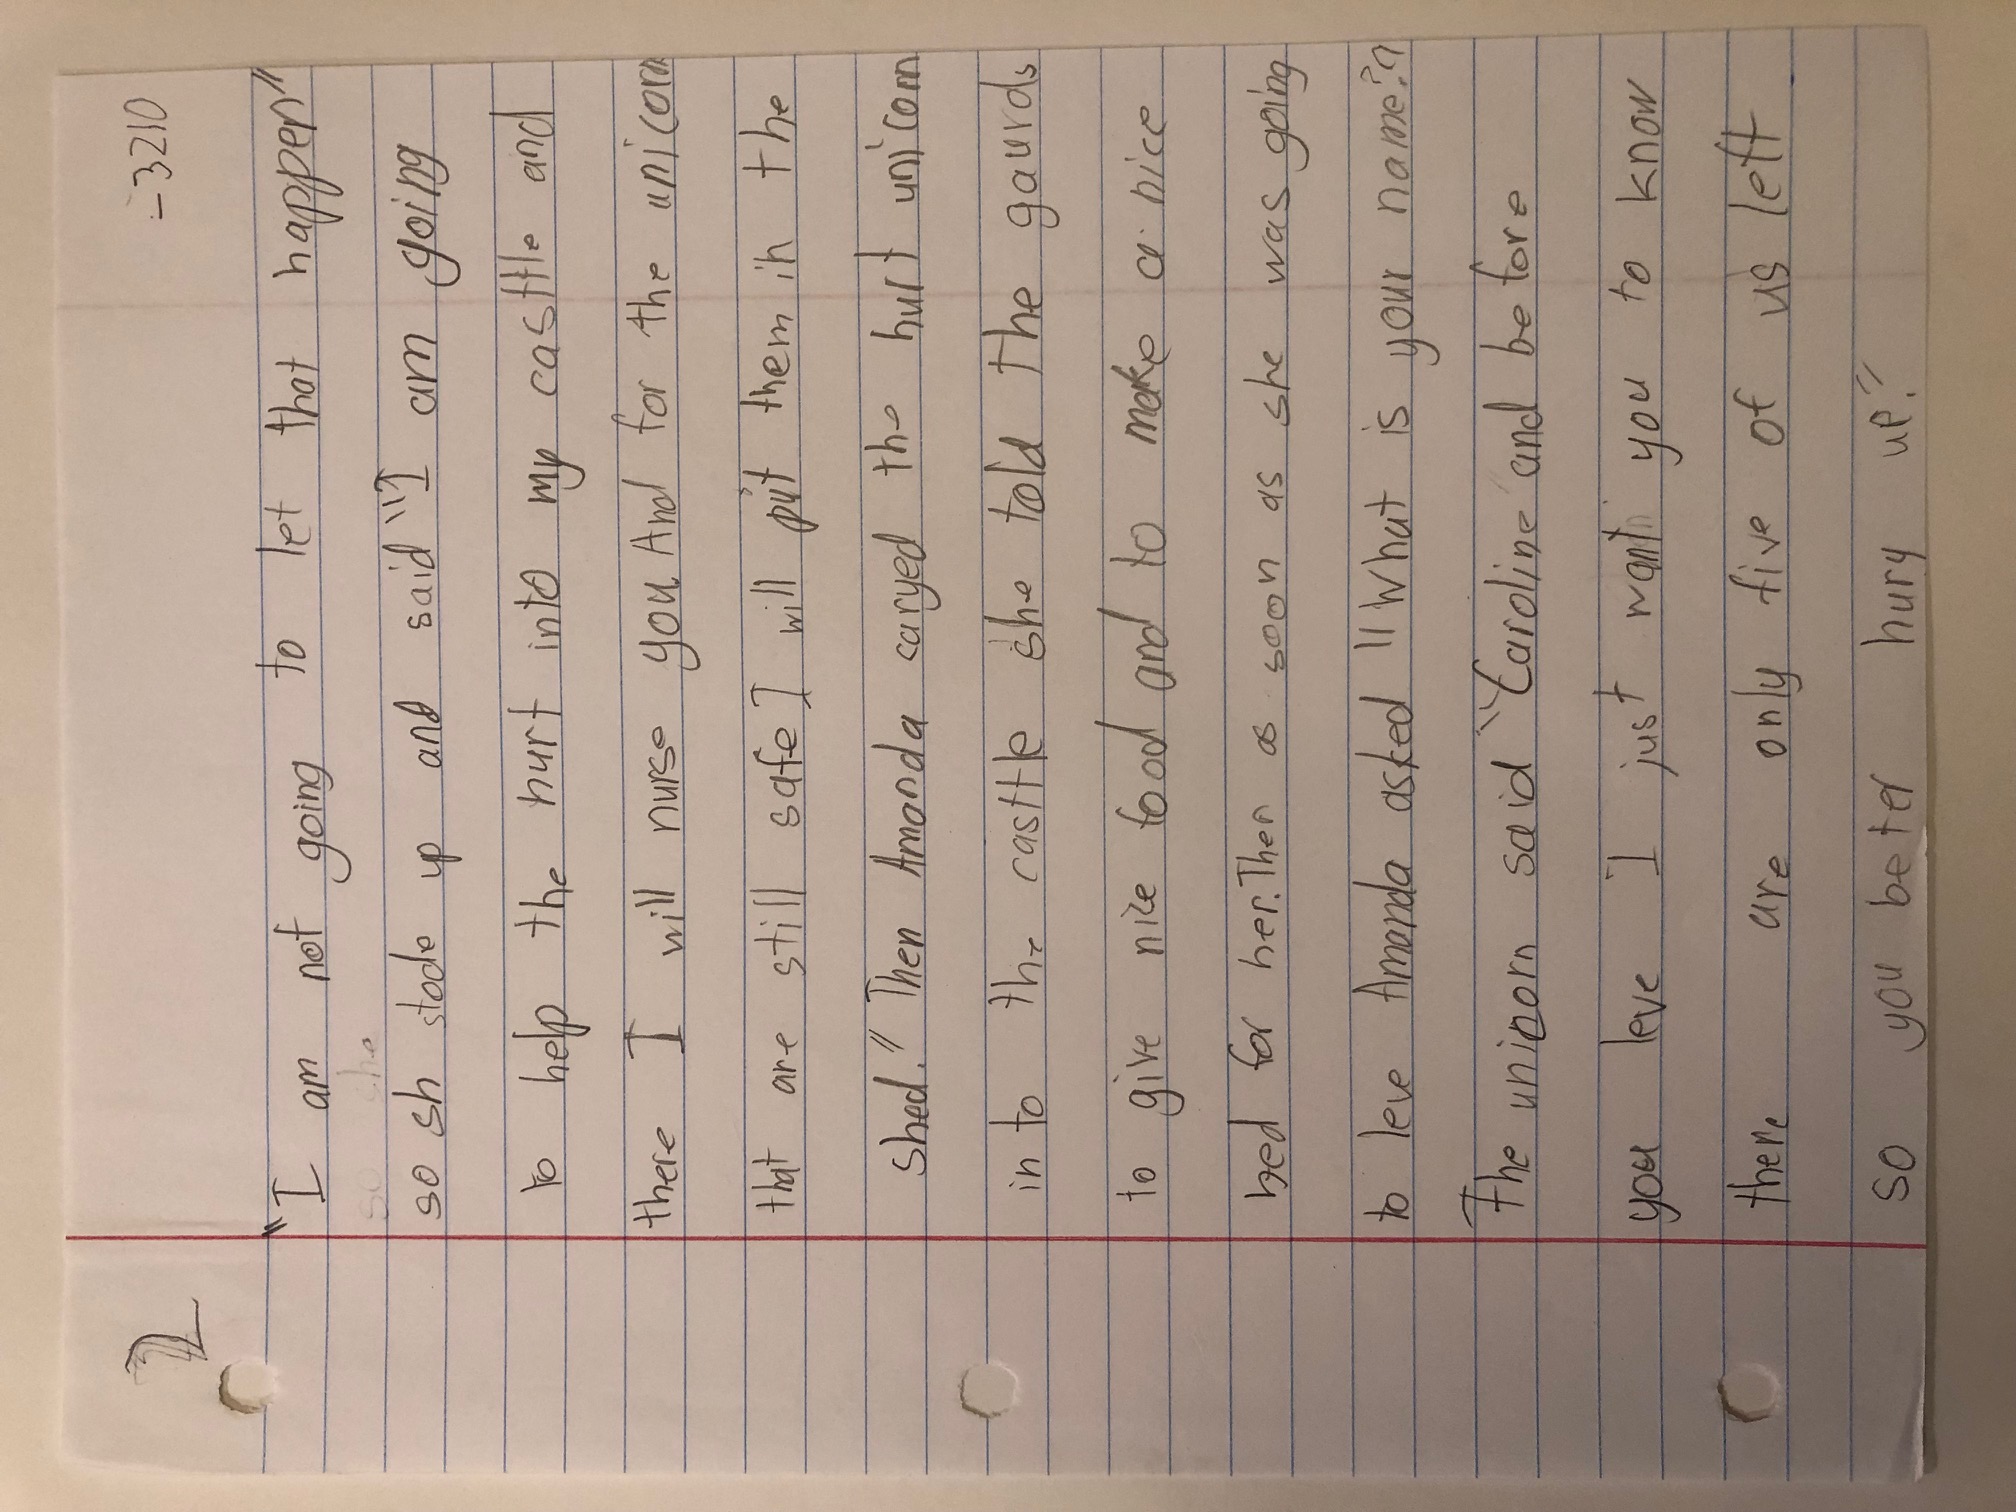 2
-3210
"I am not going to let that happen"
so she
so sh stode up and said "I am going
to help the hurt into my casttle and
there I will nurse you. And for the unicorn
that are still safe I will put them in the
shed." Then Amanda caryed the hurt unicorn
in to the casttle she told the gaurds
to give nice food and to make a nice
bed for her. Then as soon as she was going
to leve Amanda asked "What is your name?"
The unicorn said "Caroline and before
you leve I just want you to know
there are only five of us left
so you beter hury up."